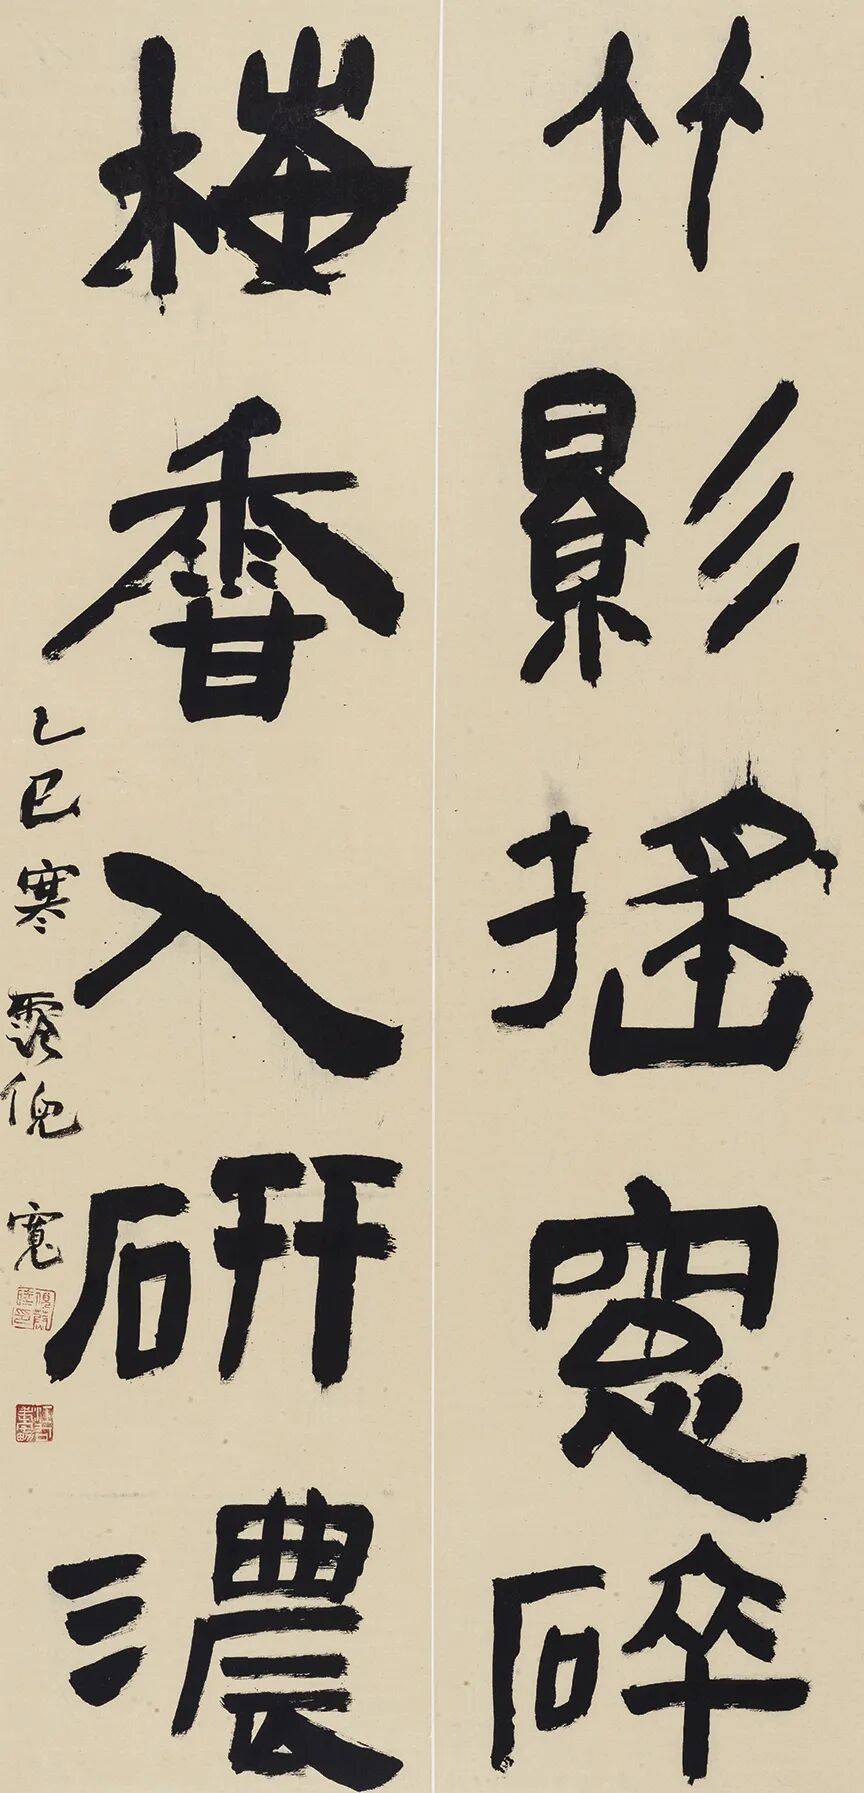 竹影搖窗碎
梅香入研濃
乙巳寒露倪寬